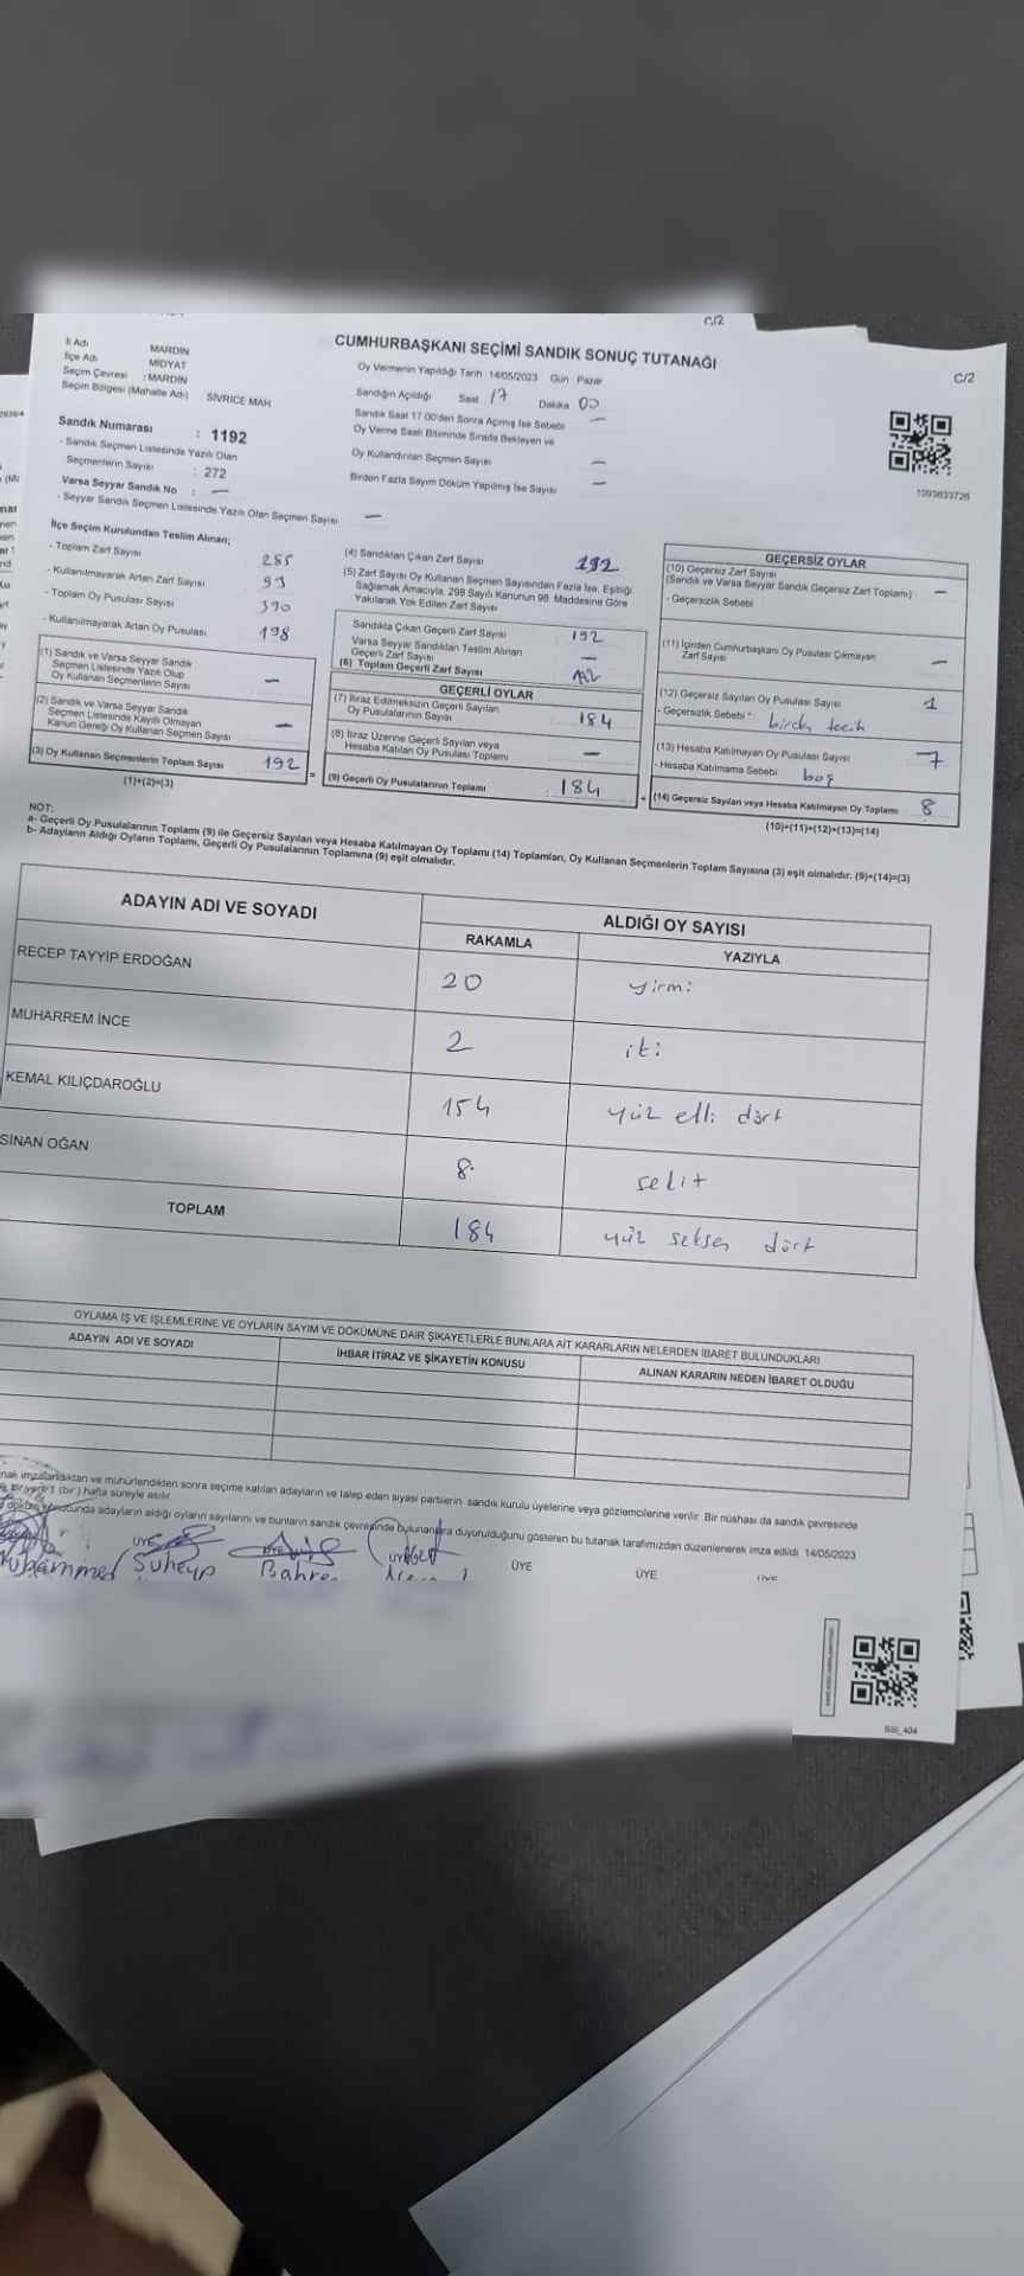 C/2
C/2
CUMHURBAŞKANI SEÇİMİ SANDIK SONUÇ TUTANAĞI
İl Adı MARDİN
İlçe Adı MİDYAT
Seçim Çevresi : MARDİN
Seçim Bölgesi (Mahalle Adı) SİVRİCE MAH
Sandık Numarası : 1192
- Sandık Seçmen Listesinde Yazılı Olan
Seçmenlerin Sayısı : 272
Varsa Seyyar Sandık No : —
- Seyyar Sandık Seçmen Listesinde Yazılı Olan Seçmen Sayısı —
Oy Vermenin Yapıldığı Tarih : 14/05/2023 Gün : Pazar
Sandığın Açıldığı Saat 17 Dakika 00
Sandık Saat 17.00'den Sonra Açılmış İse Sebebi —
Oy Verme Saati Bitiminde Sırada Bekleyen ve
Oy Kullandırılan Seçmen Sayısı —
Birden Fazla Sayım Döküm Yapılmış İse Sayısı —
1093633726
İlçe Seçim Kurulundan Teslim Alınan;
- Toplam Zarf Sayısı 285
- Kullanılmayarak Artan Zarf Sayısı 93
- Toplam Oy Pusulası Sayısı 390
- Kullanılmayarak Artan Oy Pusulası 198
(1) Sandık ve Varsa Seyyar Sandık
Seçmen Listesinde Yazılı Olup
Oy Kullanan Seçmenlerin Sayısı —
(2) Sandık ve Varsa Seyyar Sandık
Seçmen Listesinde Kayıtlı Olmayan
Kanun Gereği Oy Kullanan Seçmen Sayısı —
(3) Oy Kullanan Seçmenlerin Toplam Sayısı 192
(1)+(2)=(3)
(4) Sandıktan Çıkan Zarf Sayısı 192
(5) Zarf Sayısı Oy Kullanan Seçmen Sayısından Fazla İse, Eşitliği
Sağlamak Amacıyla, 298 Sayılı Kanunun 98. Maddesine Göre
Yakılarak Yok Edilen Zarf Sayısı
Sandıkta Çıkan Geçerli Zarf Sayısı 192
Varsa Seyyar Sandıktan Teslim Alınan
Geçerli Zarf Sayısı —
(6) Toplam Geçerli Zarf Sayısı 192
GEÇERLİ OYLAR
(7) İtiraz Edilmeksizin Geçerli Sayılan
Oy Pusulalarının Sayısı 184
(8) İtiraz Üzerine Geçerli Sayılan veya
Hesaba Katılan Oy Pusulası Toplamı —
(9) Geçerli Oy Pusulalarının Toplamı 184
GEÇERSİZ OYLAR
(10) Geçersiz Zarf Sayısı
(Sandık ve Varsa Seyyar Sandık Geçersiz Zarf Toplamı) —
- Geçersizlik Sebebi
(11) İçinden Cumhurbaşkanı Oy Pusulası Çıkmayan
Zarf Sayısı —
(12) Geçersiz Sayılan Oy Pusulası Sayısı 1
- Geçersizlik Sebebi :
(13) Hesaba Katılmayan Oy Pusulası Sayısı 7
- Hesaba Katılmama Sebebi boş
(14) Geçersiz Sayılan veya Hesaba Katılmayan Oy Toplamı 8
(10)+(11)+(12)+(13)=(14)
NOT:
a- Geçerli Oy Pusulalarının Toplamı (9) ile Geçersiz Sayılan veya Hesaba Katılmayan Oy Toplamı (14) Toplamları, Oy Kullanan Seçmenlerin Toplam Sayısına (3) eşit olmalıdır. (9)+(14)=(3)
b- Adayların Aldığı Oyların Toplamı, Geçerli Oy Pusulalarının Toplamına (9) eşit olmalıdır.
ADAYIN ADI VE SOYADI ALDIĞI OY SAYISI
RAKAMLA YAZIYLA
RECEP TAYYİP ERDOĞAN 20 yirmi
MUHARREM İNCE 2 iki
KEMAL KILIÇDAROĞLU 154 yüz elli dört
SİNAN OĞAN 8 sekiz
TOPLAM 184 yüz seksen dört
OYLAMA İŞ VE İŞLEMLERİNE VE OYLARIN SAYIM VE DÖKÜMÜNE DAİR ŞİKAYETLERLE BUNLARA AİT KARARLARIN NELERDEN İBARET BULUNDUKLARI
ADAYIN ADI VE SOYADI İHBAR İTİRAZ VE ŞİKAYETİN KONUSU ALINAN KARARIN NEDEN İBARET OLDUĞU
imzalandıktan ve mühürlendikten sonra seçime katılan adayların ve talep eden siyasi partilerin sandık kurulu üyelerine veya gözlemcilerine verilir. Bir nüshası da sandık çevresinde
bir yere 1 (bir) hafta süreyle asılır.
adayların aldığı oyların sayılarını ve bunların sandık çevresinde bulunanlara duyurulduğunu gösteren bu tutanak tarafımızdan düzenlenerek imza edildi. 14/05/2023
ÜYE ÜYE ÜYE ÜYE ÜYE ÜYE
Muhammed Süheyp
BSI_404